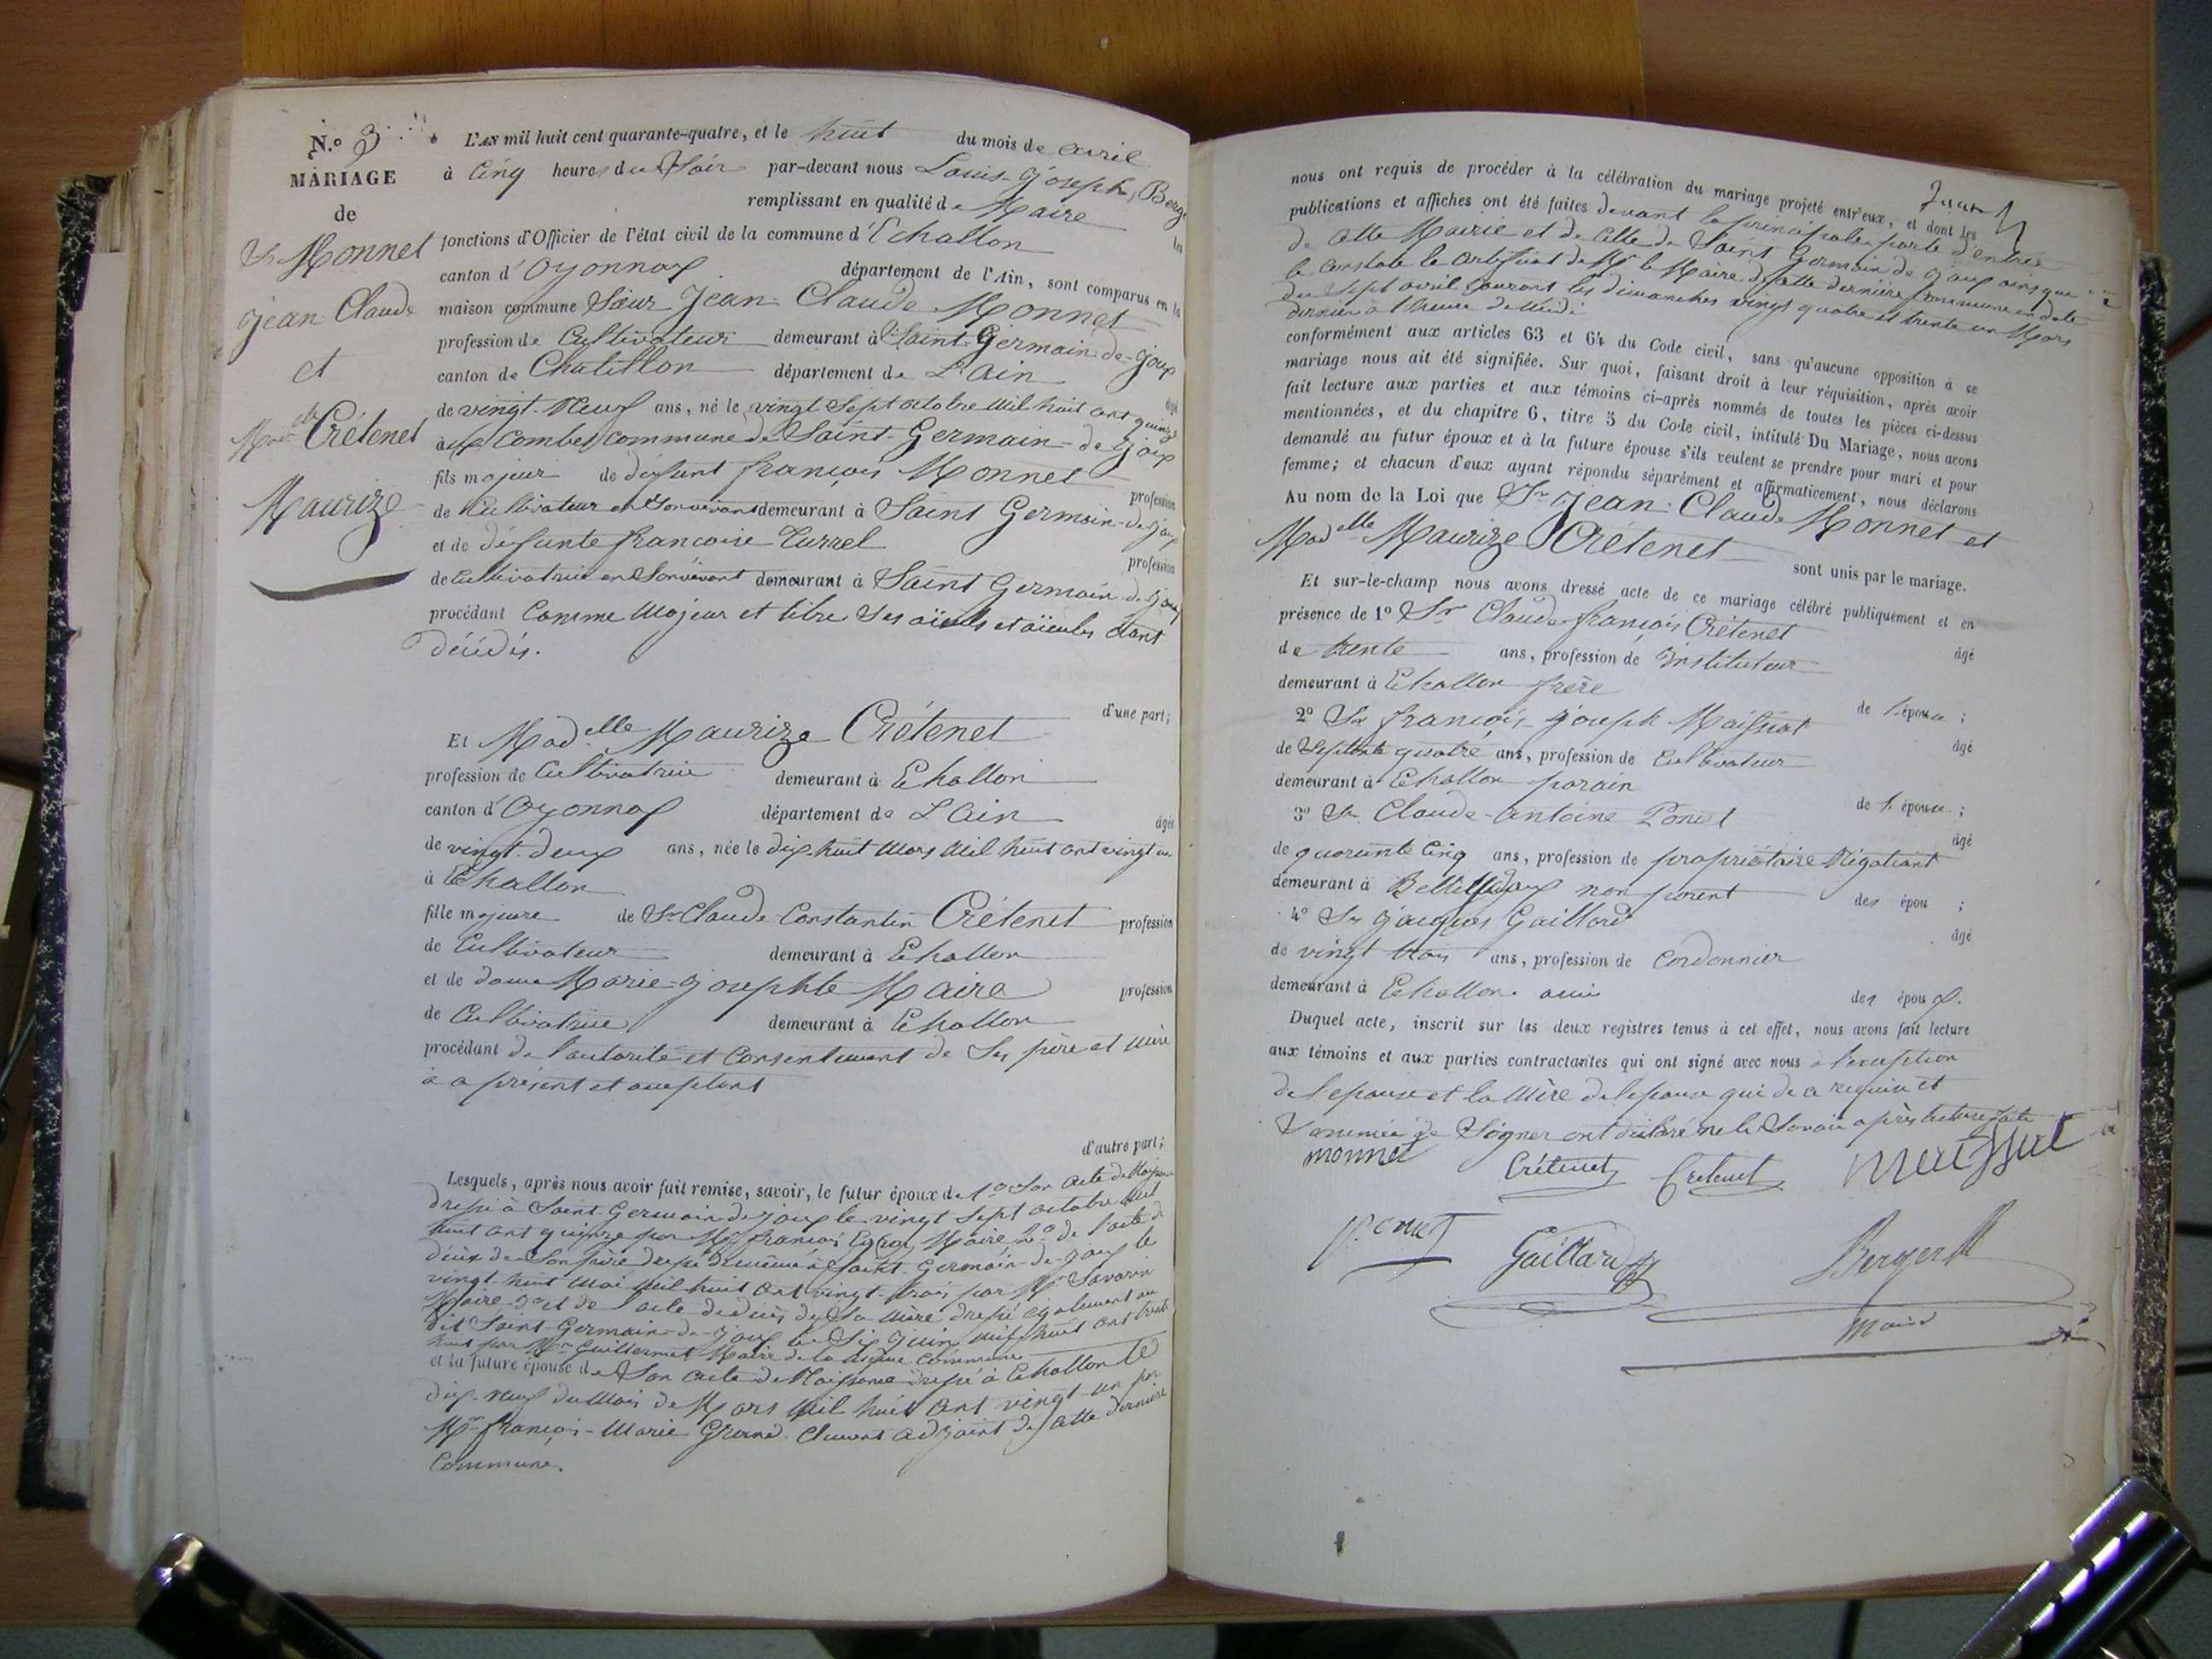 N.o 3
MARIAGE
de
Sr Monnet
Jean Claude
et
Madelle Crétenet
Maurize
L'AN mil huit cent quarante-quatre, et le huit du mois de avril
à Cinq heures du Soir par-devant nous Louis Joseph Berger
remplissant en qualité de Maire les
fonctions d'Officier de l'état civil de la commune d'Echallon
canton d'Oyonnax département de l'Ain, sont comparus en la
maison commune Sieur Jean-Claude Monnet
profession de Cultivateur demeurant à Saint-Germain-de-Joux
canton de Chatillon département de L'Ain âgé
de vingt-Neuf ans, né le vingt Sept octobre Mil huit cent quinze
aux Combes commune de Saint-Germain-de-Joux
fils majeur de défunt françois Monnet profession
de Cultivateur en Son vivant demeurant à Saint Germain-de-Joux
et de défunte francoise Turrel profession
de Cultivatrice en Son vivant demeurant à Saint Germain-de-Joux
procédant Comme Majeur et libre Ses aïeuls et aïeules étant
décédés.
d'une part;
Et Madelle Maurize Crétenet
profession de Cultivatrice demeurant à Echallon
canton d'Oyonnax département de L'Ain âgée
de vingt-deux ans, née le dix-huit Mars Mil huit cent vingt un
à Echallon
fille majeure de Sr Claude Constantin Crétenet profession
de Cultivateur demeurant à Echallon
et de dame Marie-Josephte Maire profession
de Cultivatrice demeurant à Echallon
procédant de l'autorité et Consentement de Ses père et Mère
à a présent et acceptant
d'autre part;
Lesquels, après nous avoir fait remise, savoir, le futur époux de 1o Son acte de Naissance
dressé à Saint-Germain-de-Joux le vingt Sept octobre Mil
huit cent quinze par Mr françois Maire 2o de l'acte de
décès de Son père dressé de même à Saint-Germain-de-Joux le
vingt-huit Mai Mil huit cent vingt-trois par Mr Savarin
Maire 3o et de l'acte de décès de Sa Mère dressé également au
dit Saint-Germain-de-Joux le Six Juin Mil huit cent trente
huit par Mr Guillermet Maire de la même Commune
et la future épouse de Son acte de Naissance dressé à Echallon le
dix-neuf du Mois de Mars Mil huit cent vingt-un par
Mr françois-Marie Grand-Clément adjoint de cette dernière
Commune.
nous ont requis de procéder à la célébration du mariage projeté entr'eux, et dont les
publications et affiches ont été faites devant la principale porte d'entrée
de cette Mairie et de Celle de Saint Germain de Joux ainsi que
le constate le Certificat de Mr le Maire de cette dernière Commune en date
du Sept avril Courant les dimanches vingt quatre et trente un Mars
dernier à l'heure de Midi
conformément aux articles 63 et 64 du Code civil, sans qu'aucune opposition à ce
mariage nous ait été signifiée. Sur quoi, faisant droit à leur réquisition, après avoir
fait lecture aux parties et aux témoins ci-après nommés de toutes les pièces ci-dessus
mentionnées, et du chapitre 6, titre 5 du Code civil, intitulé Du Mariage, nous avons
demandé au futur époux et à la future épouse s'ils veulent se prendre pour mari et pour
femme; et chacun d'eux ayant répondu séparément et affirmativement, nous déclarons
Au nom de la Loi que Sr Jean-Claude Monnet et
Madelle Maurize Crétenet sont unis par le mariage.
Et sur-le-champ nous avons dressé acte de ce mariage célébré publiquement et en
présence de 1o Sr Claude françois Crétenet âgé
de trente ans, profession de Instituteur
demeurant à Echallon frère de l'épouse;
2o Sr françois-Joseph Maissiat âgé
de Septente quatre ans, profession de Cultivateur
demeurant à Echallon parain de l'épouse;
3o Sr Claude-Antoine Poncet âgé
de quarante Cinq ans, profession de propriétaire Négociant
demeurant à Belleydoux non parent des épou ;
4o Sr Jacques Gaillard âgé
de vingt trois ans, profession de Cordonnier
demeurant à Echallon ami des époux.
Duquel acte, inscrit sur les deux registres tenus à cet effet, nous avons fait lecture
aux témoins et aux parties contractantes qui ont signé avec nous à l'exception
de l'épouse et la Mère de l'épouse qui de ce requise et
Sommée de Signer ont déclaré ne le Savoir après lecture faite
monnet Crétenet Cretenet Maissiat
Poncet Gaillard Berger
Maire